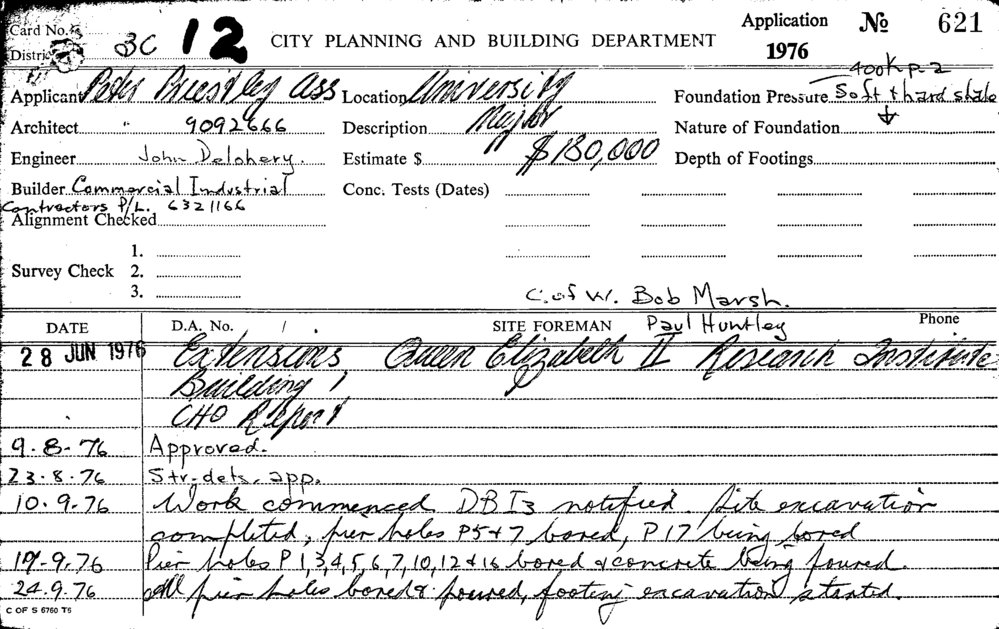 Card No.
Application No 621
District BC 12 CITY PLANNING AND BUILDING DEPARTMENT 1976
400K p-2
Applicant Peter Priestley Ass Location University Foundation Pressure Soft & hard shale
Architect " 9092666 Description Major Nature of Foundation
Engineer John Delohery. Estimate $ $180,000 Depth of Footings
Builder Commercial Industrial Conc. Tests (Dates)
Contractors P/L. 6321166
Alignment Checked
1.
Survey Check 2.
3.
C. of W. Bob Marsh.
DATE D.A. No. / . SITE FOREMAN Paul Huntley Phone
28 JUN 1976 Extensions Queen Elizabeth II Research Institute
Building
CHO Report
9.8.76 Approved.
23.8.76 Str. dets. app.
10.9.76 Work commenced DBI3 notified. Site excavation
completed, pier holes P5+7 bored, P17 being bored
17.9.76 Pier holes P1,3,4,5,6,7,10,12 & 16 bored & concrete being poured.
24.9.76 All pier holes bored & poured, footing excavation started.
C OF S 6760 T5